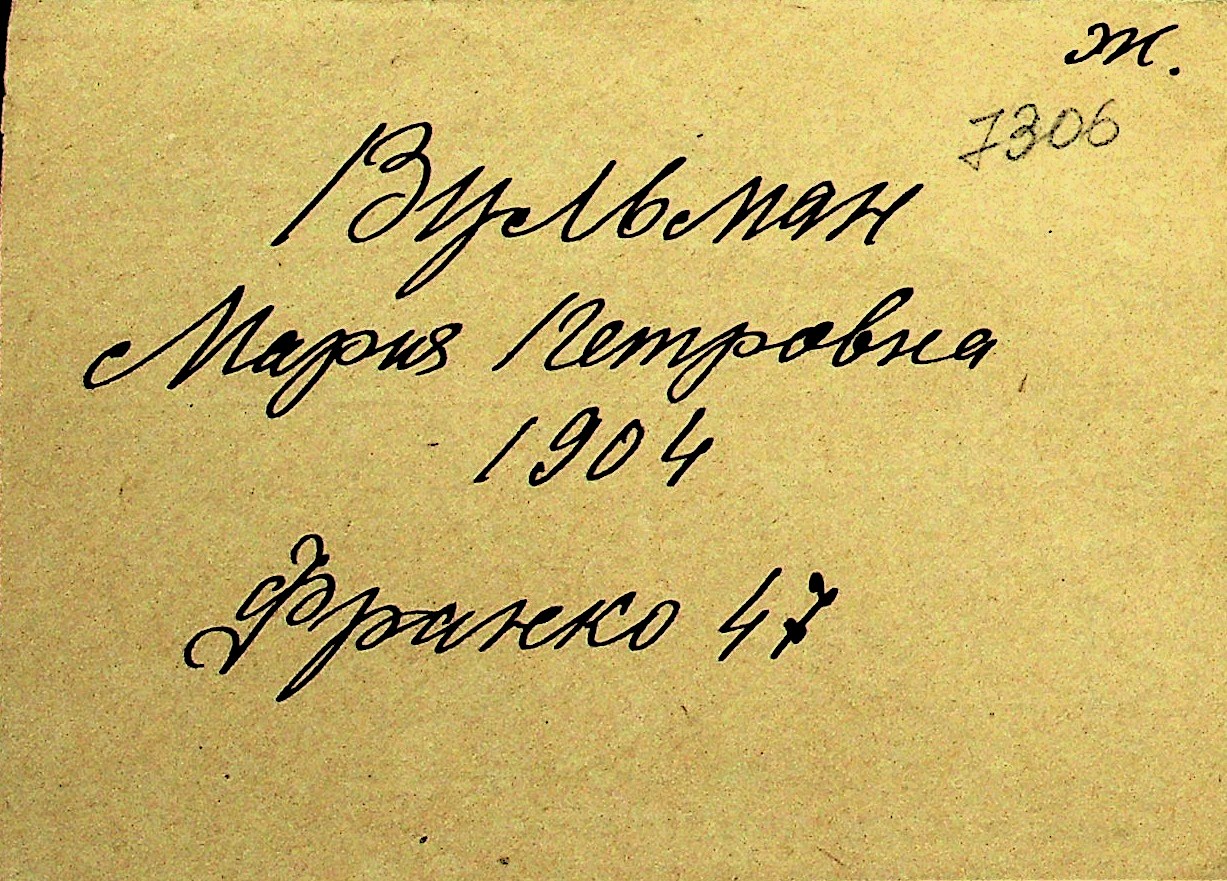 ж.
7306
Вульман
Мария Петровна
1904
Франко 47